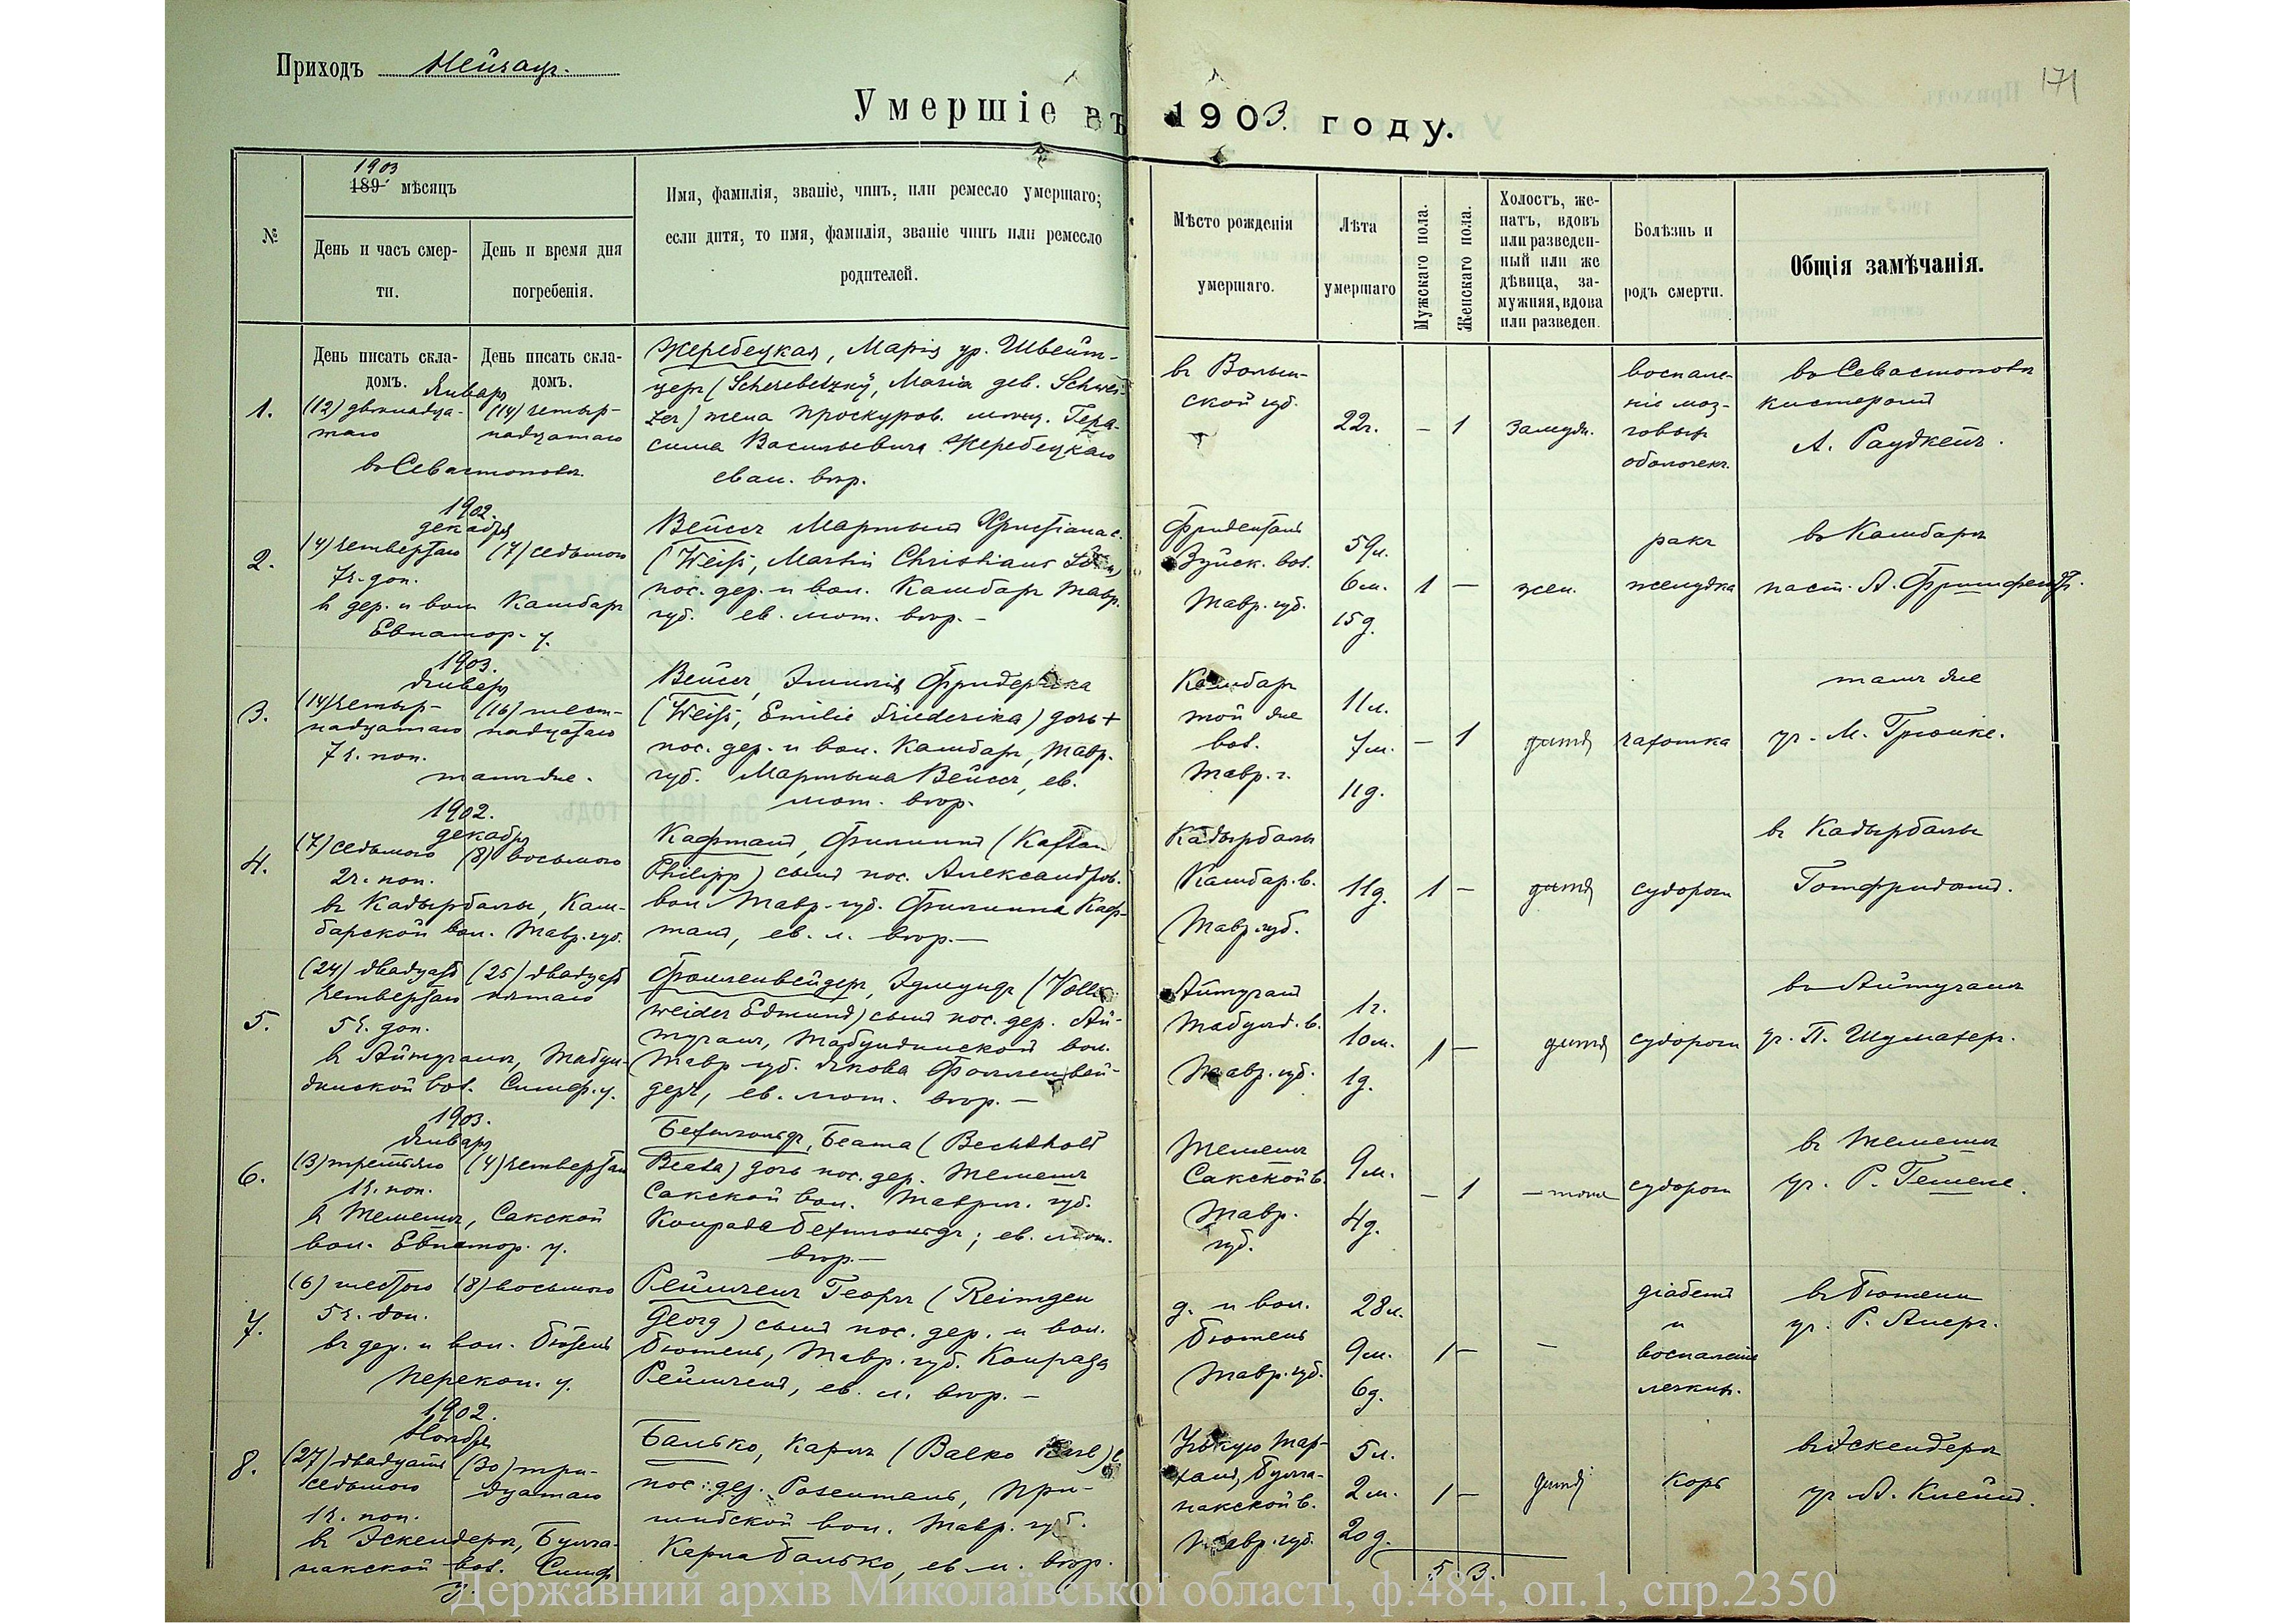 Приходъ Нейзацъ.
171
Умершіе въ 1903. году.
№
1903
189 мѣсяцъ
День и часъ смер-
ти.
День и время дня
погребенія.
Имя, фамилія, званіе, чинъ, или ремесло умершаго;
если дитя, то имя, фамилія, званіе чинъ или ремесло
родителей.
Мѣсто рожденія
умершаго.
Лѣта
умершаго
Мужскаго пола.
Женскаго пола.
Холостъ, же-
натъ, вдовъ
или разведен-
ный или же
дѣвица, за-
мужняя, вдова
или разведен.
Болѣзнь и
родъ смерти.
Общія замѣчанія.
День писать скла-
домъ.
День писать скла-
домъ.
1.
Января
(12) двѣнадца-
таго
(14) четыр-
надцатаго
въ Севастополѣ.
Жеребецкая, Марія ур. Швейт-
церъ (Scherebetzky, Maria geb. Schwei-
zer) жена проскуров. мѣщ. Гера-
сима Васильевича Жеребецкаго
еван. вѣр.
въ Волын-
ской губ.
22г.
– 1
замужн.
воспале-
ніе моз-
говыхъ
оболочекъ.
въ Севастополѣ
кистеромъ
А. Раудкепъ.
2.
1902.
декабря
(4) четвертаго
(7) седьмого
7ч. доп.
в дер. и вол. Камбаръ
Евпатор. у.
Вейссъ Мартынъ Христіанас.
(Weiß, Martin Christians Sohn)
пос. дер. и вол. Камбаръ Тавр.
губ. ев. лют. вѣр. –
Фриденталь
Зуйск. вол.
Тавр. губ.
59л.
6м.
15д.
1 –
жен.
ракъ
желудка
въ Камбарѣ
паст. А.
3.
1903.
Января
(14) четыр-
надцатаго
(16) шест-
надцатаго
7ч. поп.
тамъ же.
Вейссъ, Эмилія Фридерика
(Weiß, Emilie Friederika) дочь +
пос. дер. и вол. Камбаръ, Тавр.
губ. Мартына Вейссъ, ев.
лют. вѣр.
Камбаръ
той же
вол.
Тавр. г.
11л.
7м.
11д.
– 1
дитя
чахотка
тамъ же
уч. М. Грюнке.
4.
1902.
декабря
(7) седьмого
(8) восьмого
2ч. поп.
въ Кадырбалы, Кам-
барской вол. Тавр. губ.
Кафтанъ, Филиппъ (Kaftan
Philipp) сынъ пос. Александров.
вол. Тавр. губ. Филиппа Каф-
танъ, ев. л. вѣр. –
Кадырбалы
Камбар. в.
Тавр. губ.
11д.
1 –
дитя
судороги
въ Кадырбалы
Готфридомъ.
5.
(24) двадцать
четвертаго
(25) двадцать
пятаго
5ч. доп.
въ Айтуганѣ, Табул-
динской вол. Симф. у.
Фолленвейдеръ, Эдмундъ (Vollen-
weider Edmund) сынъ пос. дер. Ай-
туганъ, Табулдинской вол.
Тавр. губ. Якова Фолленвей-
деръ, ев. лют. вѣр. –
Айтуганъ
Табулд. в.
Тавр. губ.
1г.
10м.
1д.
1 –
дитя
судороги
въ Айтуганѣ
уч. П. Шумахеръ.
6.
1903.
Января
(3) третьяго
(4) четвертаго
1ч. поп.
в Темешъ, Сакской
вол. Евпатор. у.
Бехтгольдъ, Беата (Bechthold
Beata) дочь пос. дер. Темешъ
Сакской вол. Таврич. губ.
Конрада Бехтгольдъ; ев. лют.
вѣр. –
Темешъ
Сакской в.
Тавр.
губ.
9м.
4д.
– 1
– тоже
судороги
въ Темешѣ
уч. Р. Гешеле.
7.
(6) шестого
(8) восьмого
5ч. доп.
въ дер. и вол. Бютень
Перекоп. у.
Реймгенъ Георгъ (Reimgen
Georg) сынъ пос. дер. и вол.
Бютень, Тавр. губ. Конрада
Реймгенъ, ев. л. вѣр. –
д. и вол.
Бютень
Тавр. губ.
28л.
9м.
6д.
1 –
–
діабетъ
и
воспаленіе
легкихъ.
въ Бютени
уч. Р. Аперъ.
8.
1902.
Ноября
(27) двадцать
седьмого
(30) три-
дцатаго
1ч. поп.
въ Эскендеръ, Булга-
накской вол. Симф.
у.
Балько, Карлъ (Balko Karl) с
пос. дер. Розенталь, При-
шибской вол. Тавр. губ.
Карла Балько, ев. л. вѣр.
Тар-
ханъ, Булга-
накской в.
Тавр. губ.
5л.
2м.
20д.
1 –
дитя
корь
въ Эскендерѣ
уч. А. Клейнъ.
5. 3.
Державний архів Миколаївської області, ф.484, оп.1, спр.2350